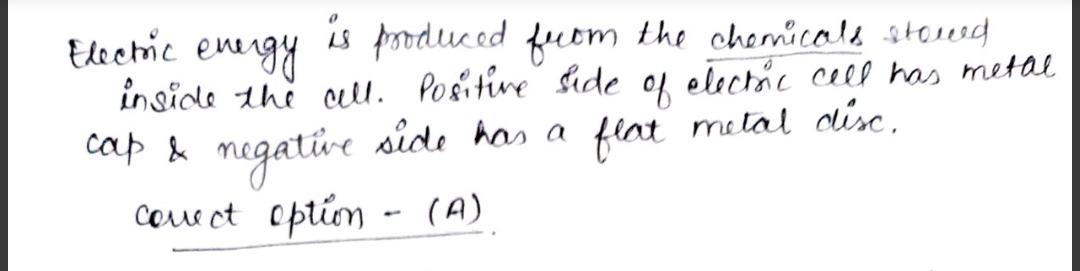 Electric energy is produced from the chemicals stored
inside the cell. Positive side of electric cell has metal
cap & negative side has a flat metal disc.
correct option - (A)